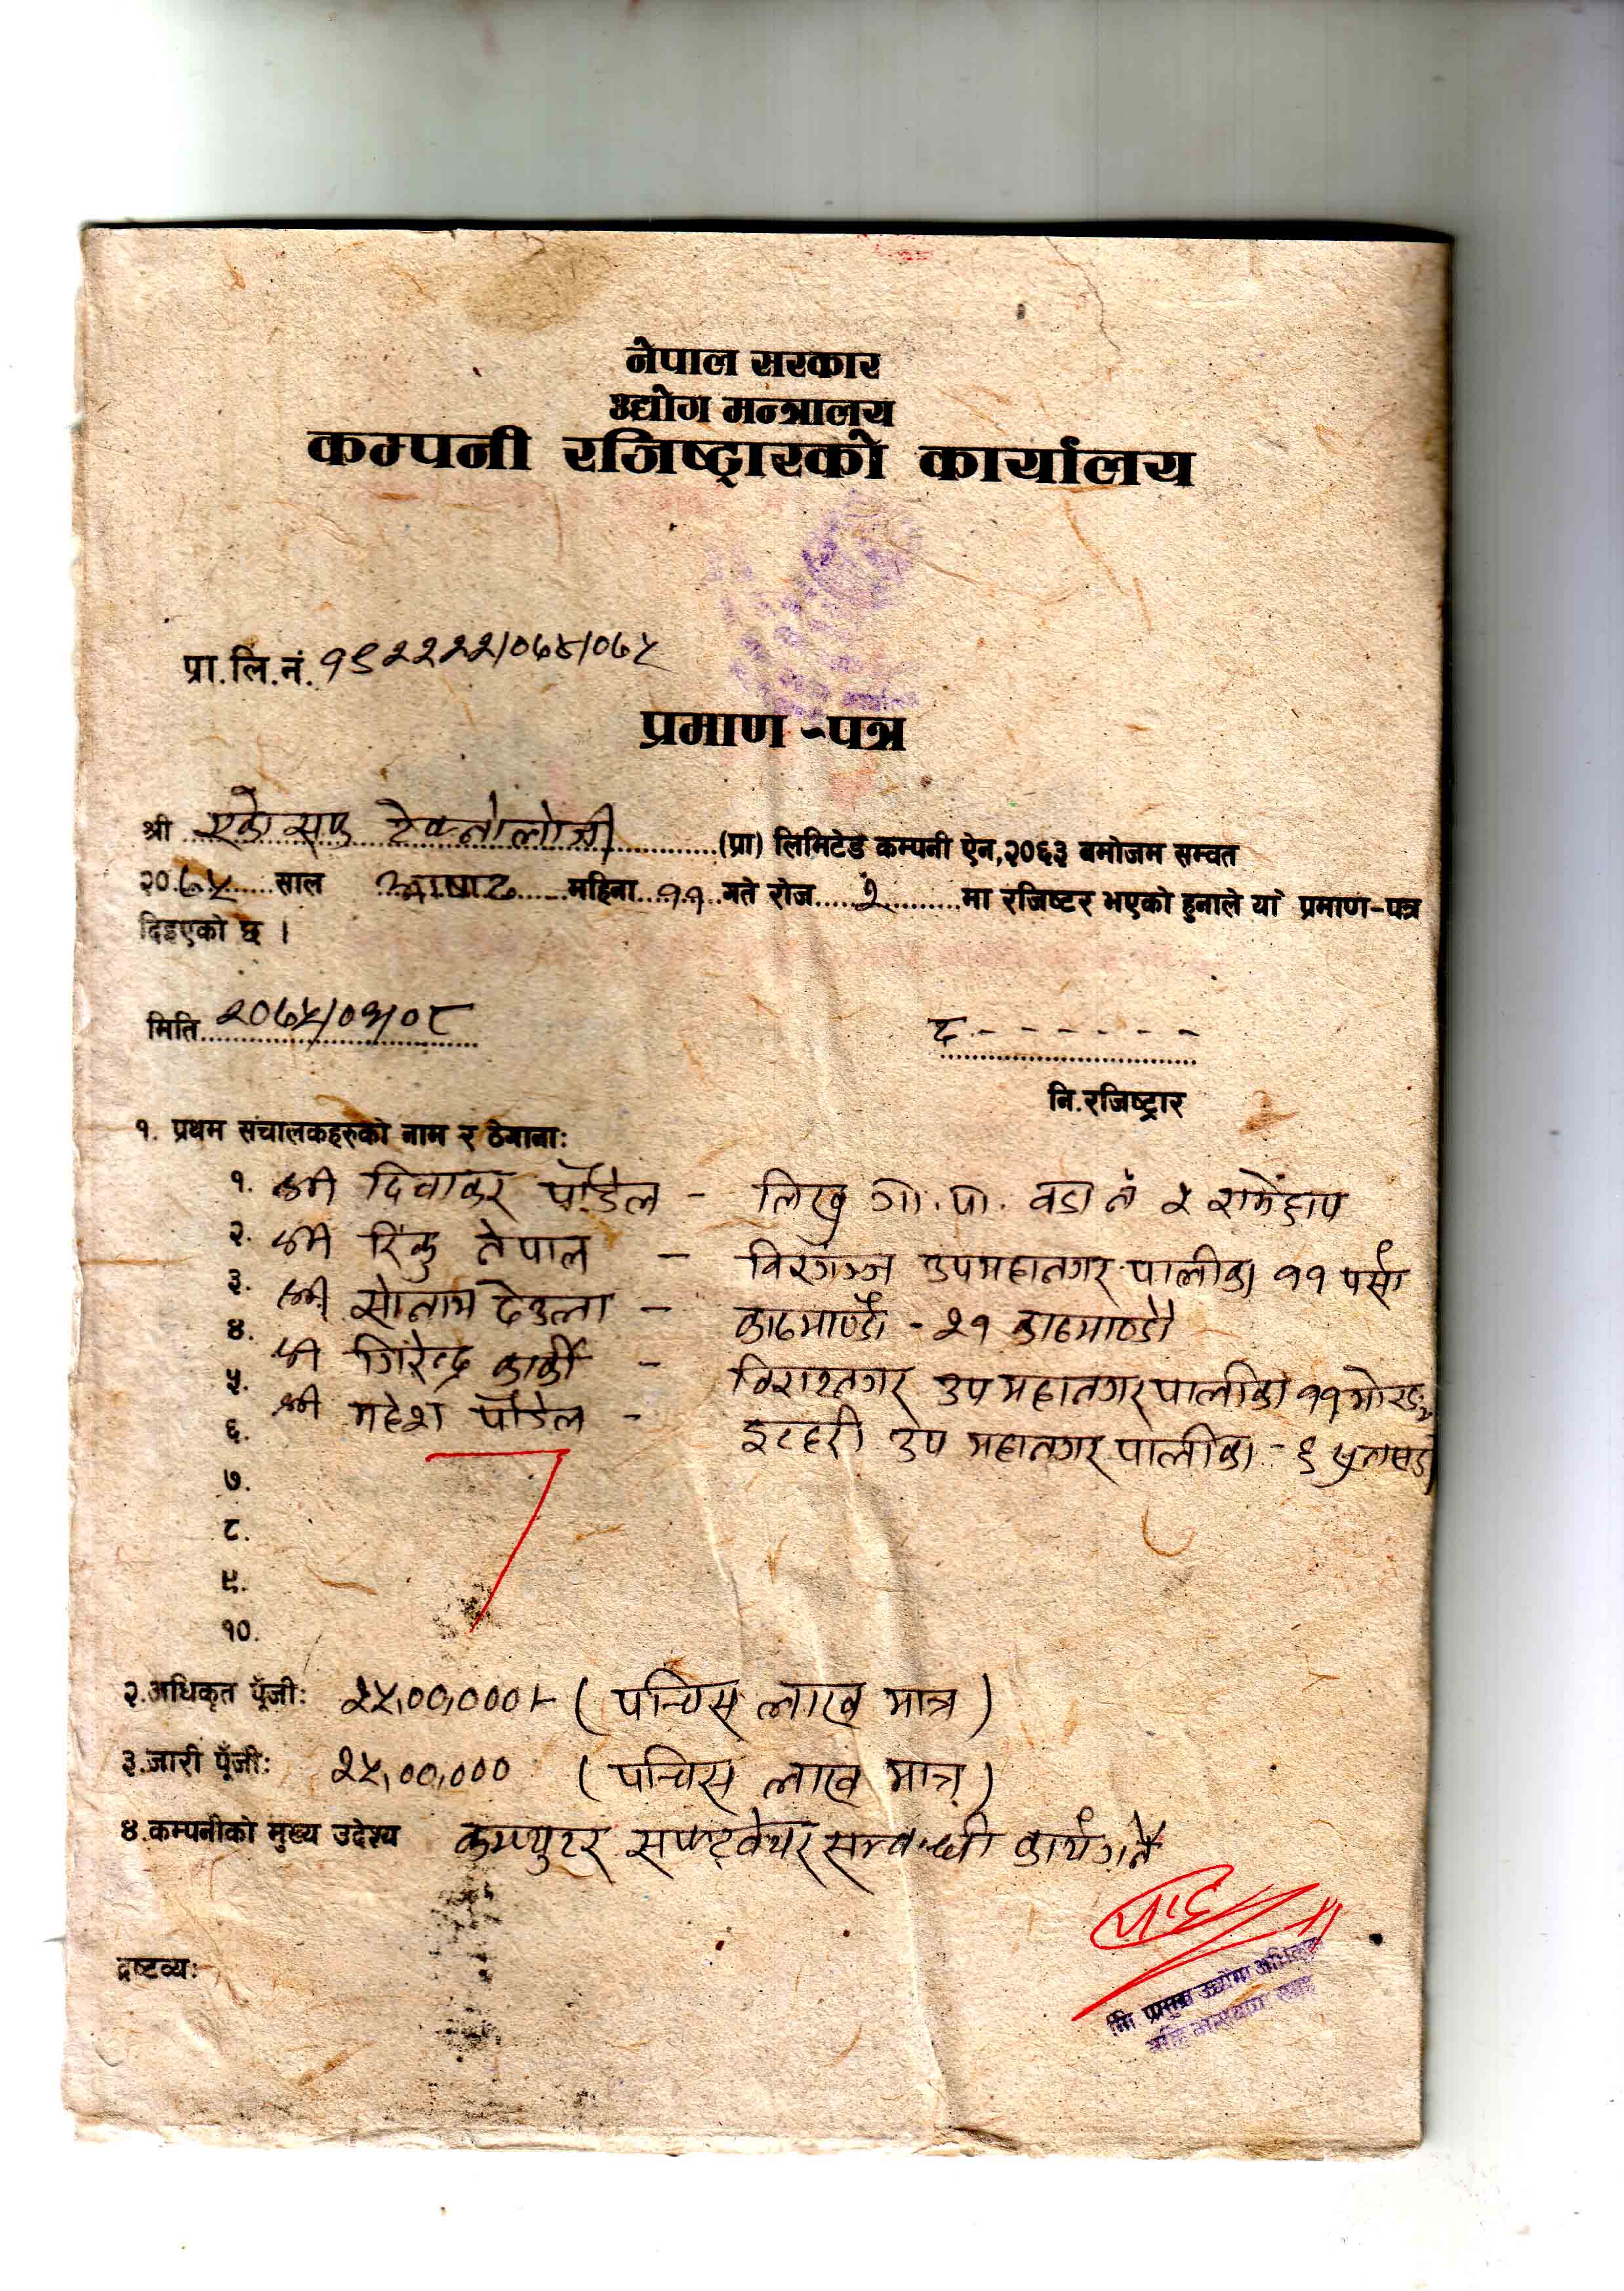 नेपाल सरकार
उद्योग मन्त्रालय
कम्पनी रजिष्ट्रारको कार्यालय
प्रा.लि.नं. १९२२२२/०७४/०७५
प्रमाण-पत्र
श्री एको सफ्ट टेक्नोलोजी (प्रा) लिमिटेड कम्पनी ऐन,२०६३ बमोजम सम्वत
२०७५ साल आषाढ महिना ११ गते रोज २ मा रजिष्टर भएको हुनाले यो प्रमाण-पत्र
दिइएको छ ।
मिति २०७५/०३/०८ द. - - - - - - -
नि.रजिष्ट्रार
१. प्रथम संचालकहरुको नाम र ठेगाना:
१. श्री दिवाकर पौडेल - लिखु गा.पा. वडा नं ५ रामेछाप
२. श्री रिंकु नेपाल - विरगञ्ज उपमहानगरपालीका ११ पर्सा
३. श्री सोनाम देउला - काठमाण्डौ - २१ काठमाण्डौ
४. श्री गिरेन्द्र कार्की - विराटनगर उपमहानगरपालीका ११ मोरङ
५. श्री महेश पौडेल - इटहरी उप महानगरपालीका - ६ सुनसरी
६.
७.
८.
९.
१०.
२.अधिकृत पूँजी: २५,००,०००।- (पच्चिस लाख मात्र)
३.जारी पूँजी: २५,००,००० (पच्चिस लाख मात्र)
४.कम्पनीको मुख्य उदेश्य कम्प्युटर सफ्टवेयर सम्वन्धी कार्य गर्ने
द्रष्टव्य: